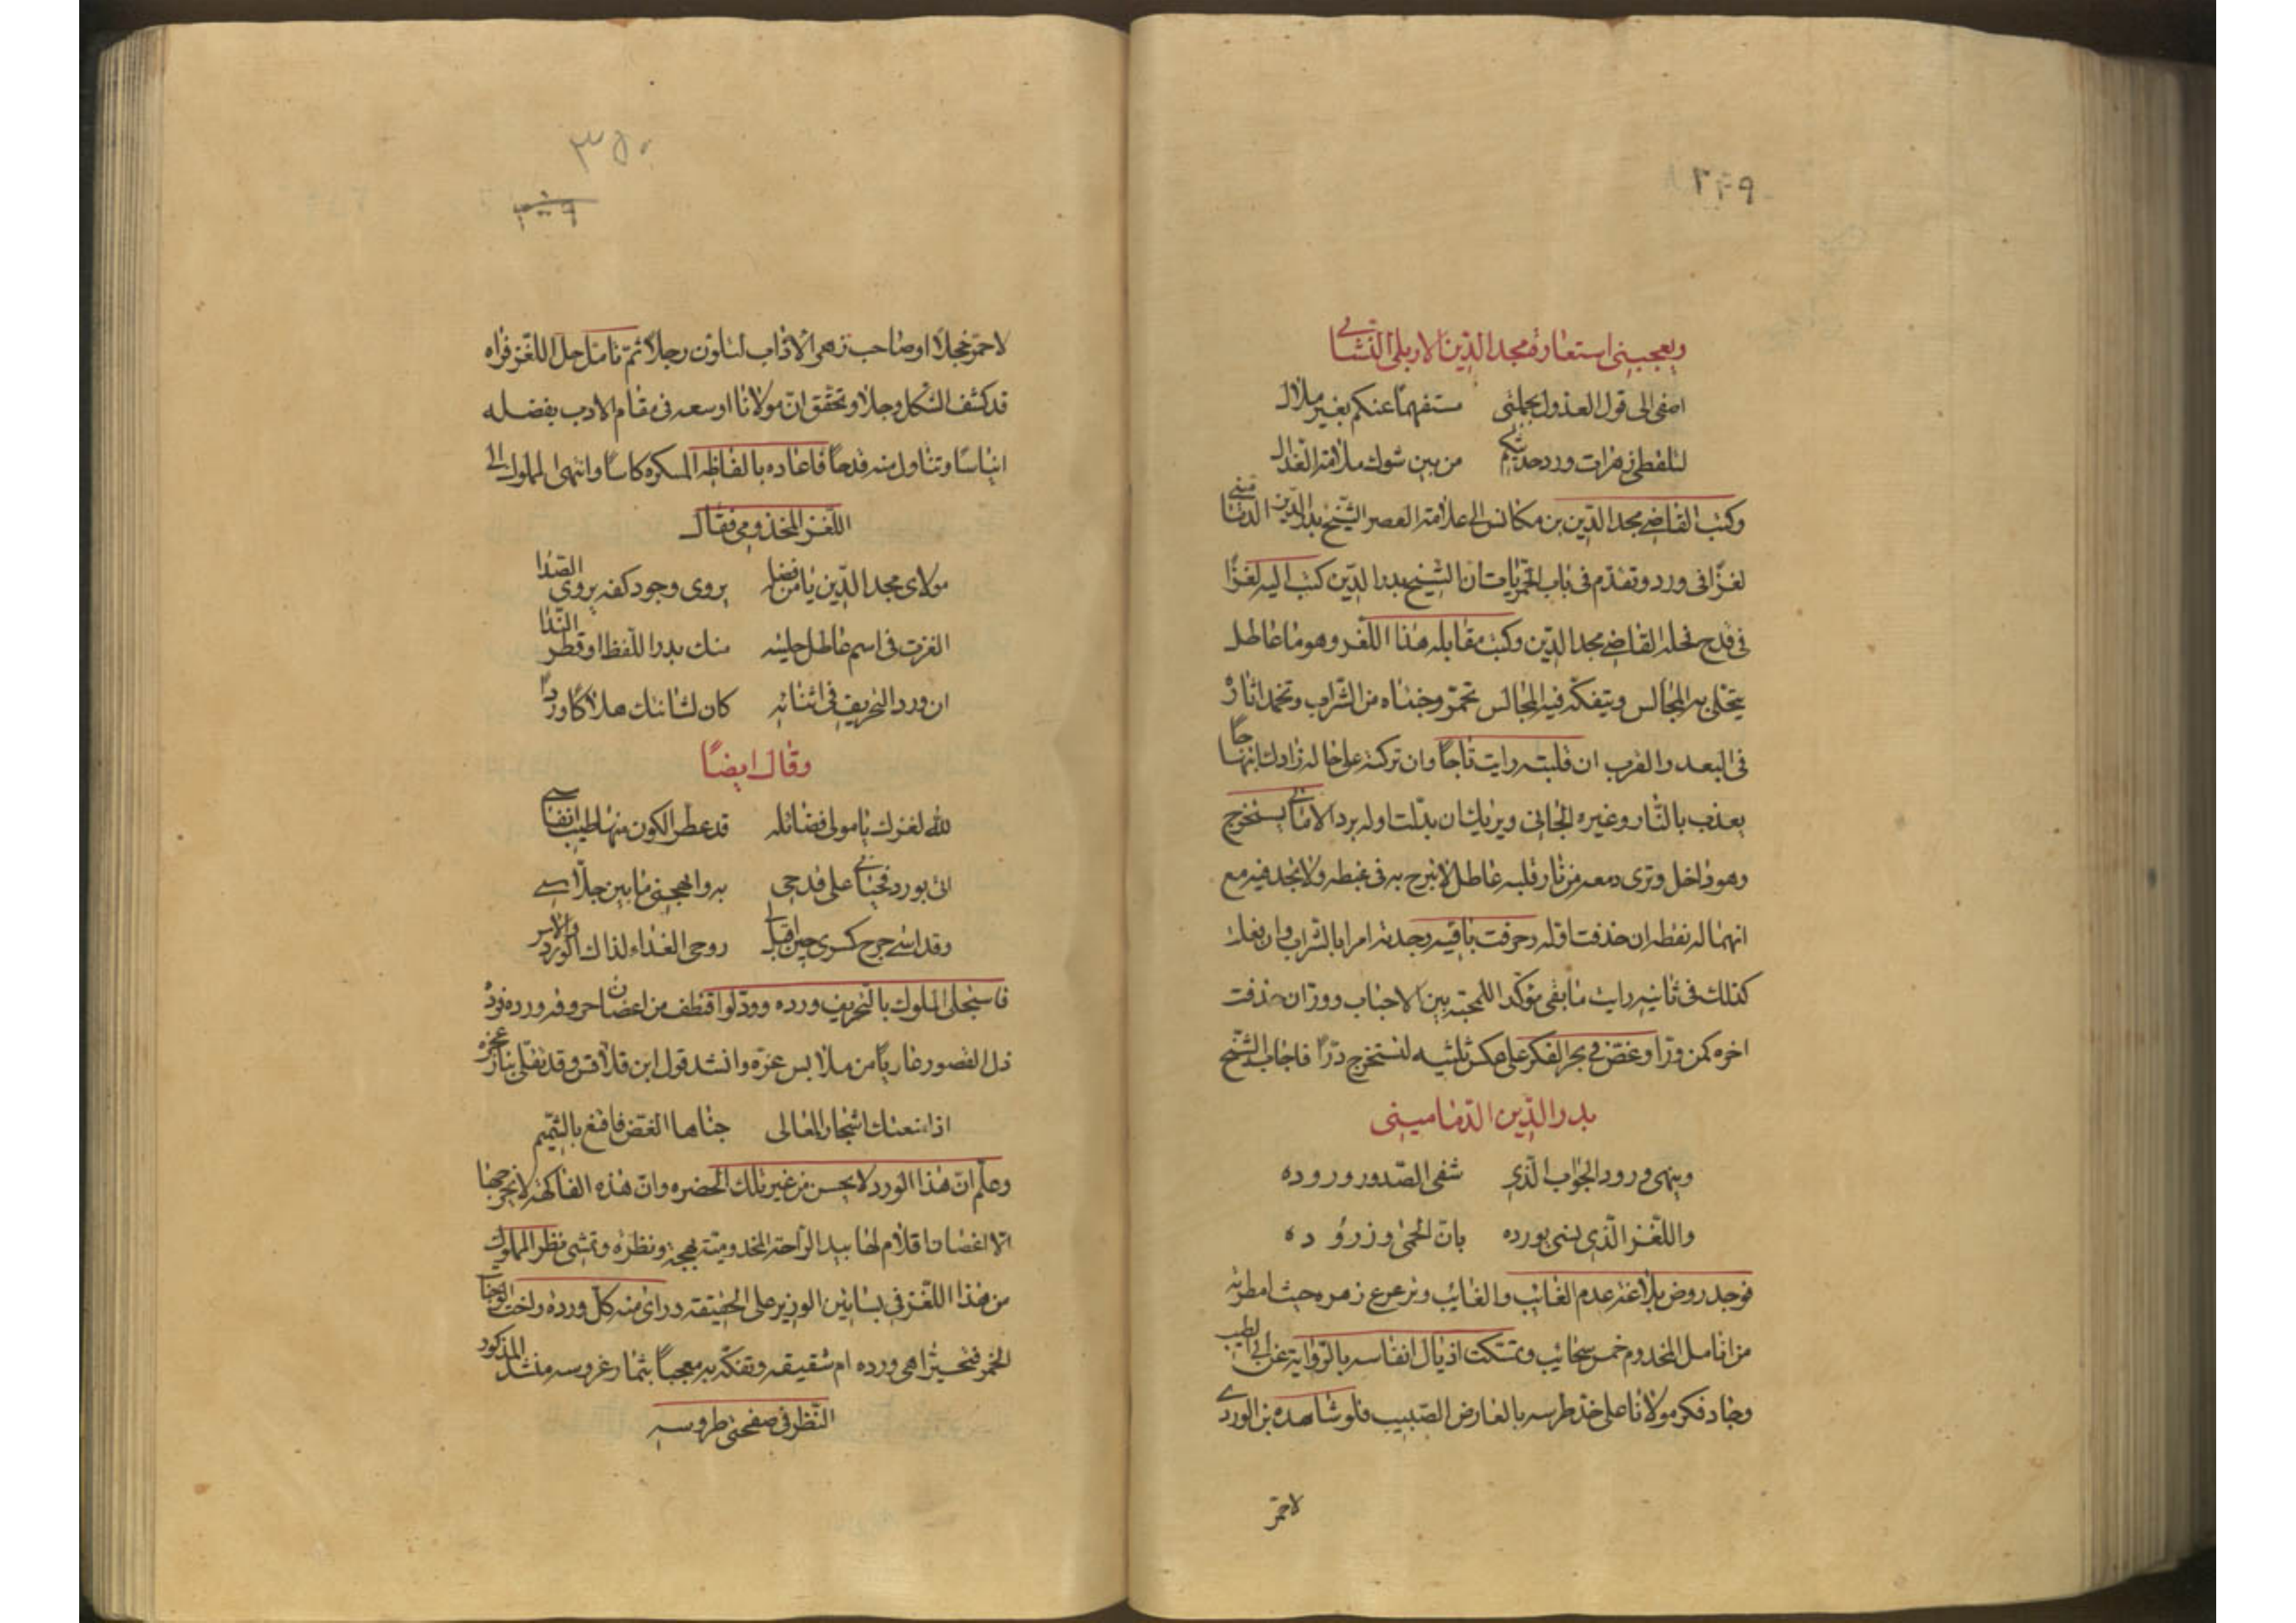 ٣٤٩
ويعجبني استعارة مجد الدين الاربلي النشابي
اصغى الى قول العذول بجملتى مستفهما عنكم بغير ملال
لتلقطى زهرات ورد حديثكم من بين شوك ملامة العذال
وكتب القاضي مجد الدين بن مكانس الى علامة العصر الشيخ بدر الدين الدمامينى
لغزا فى ورد وتقدم فى باب الخمريات ان الشيخ بدر الدين كتب اليه لغزا
فى قدح فحله القاضي مجد الدين وكتب مقابله هذا اللغز وهو ما عاطل
يتحلى به المجالس ويتفكه فيه المجالس تحمر وجناه من الشراب وتخمد اثاره
فى البعد والقرب ان قلبته رايت تاجا وان تركته على حاله زادك ابتهاجا
يعذب بالنار وغيره الجانى ويريك ان بدلت اوله برد الامانى يستخرج
وهو داخل وترى دمعه من نار قلبه عاطل لا تبرح به فى غبطه ولا تجد فيه مع
انهما له نقطه ان حذفت اوله وحرفت باقيه وجدته امرا بالشراب وان فعلت
كذلك فى ثانيه رايت ما بقى مؤكدا للمحبة بين الاحباب وودا ان حذفت
اخره كمن ودا وغض في بحر الفكر على عكس ثلثيه لتستخرج درا فاجاب الشيخ
بدر الدين الدمامينى
وينهى ورود الجواب الذي شفى الصدور وروده
واللغز الذي ينبى بورده بان الحمى وزروده
فوجد روض بلاغة عدم الغائب والعايب وترعرع زهره حيث امطرته
من انامل المخدوم خمس سحايب وتمسكت اذيال انفاسه بالرواية عن ابى الطيب
وجاد فكر مولانا على خد طرسه بالعارض الصبيب فلو شاهده بن الوردي
لاحمر
٣٥٠
لاحمر خجلا او صاحب زهر الاداب لتلون وجلا ثم تامل حل اللغز فراه
قد كشف الشكل وجلا وتحقق ان مولانا اوسعه فى مقام الادب بفضله
ايناسا وتناول منه قدحا فاعاده بالفاظه المسكره كاسا وانتهى المملوك الى
اللغز المخدومى فقال
مولاى مجد الدين يا من فضله يروى وجود كفه يروى الصدا
الغزت فى اسم عاطل حليته منك بدر اللفظ او قطر الندا
ان ورد التحريف فى اثنائه كان لشانئك هلاكا وردا
وقال ايضا
لله لغزك يا مولى فضائله قد عطر الكون منها طيب انفاسي
اتى بورد فحيانى على قدحى به وا هجنى ما بين جلاسي
وقد اسي جرح كسرى حين اقبل لى روحى الفداء لذاك الورد والاس
فاستجلى المملوك بالتحريف ورده وود لو اقتطف من اغصان احروفه ورده فرده
ذل القصور عاريا من ملابس عزه وانشد قول ابن قلاقس وقد تقلى بنار عجزه
اذا منعتك اشجار المعالى جناها الغض فاقنع بالشميم
وعلم ان هذا الورد لا يحسن من غير تلك الحضره وان هذه الفاكهة لا تخرجها
الا اغصان اقلام لها بيد الراحة المخدومية بهجة ونظره وتمشى نظر المملوك
من هذا اللغز في بساتين الوزير على الحقيقة وراى منه كل ورده راحت الوجنات
الخمر فتحير اهى ورده ام شقيقه وتفكه به معجبا بثمار غروسه منشد المذكور
النظر فى صفحتى طروسه